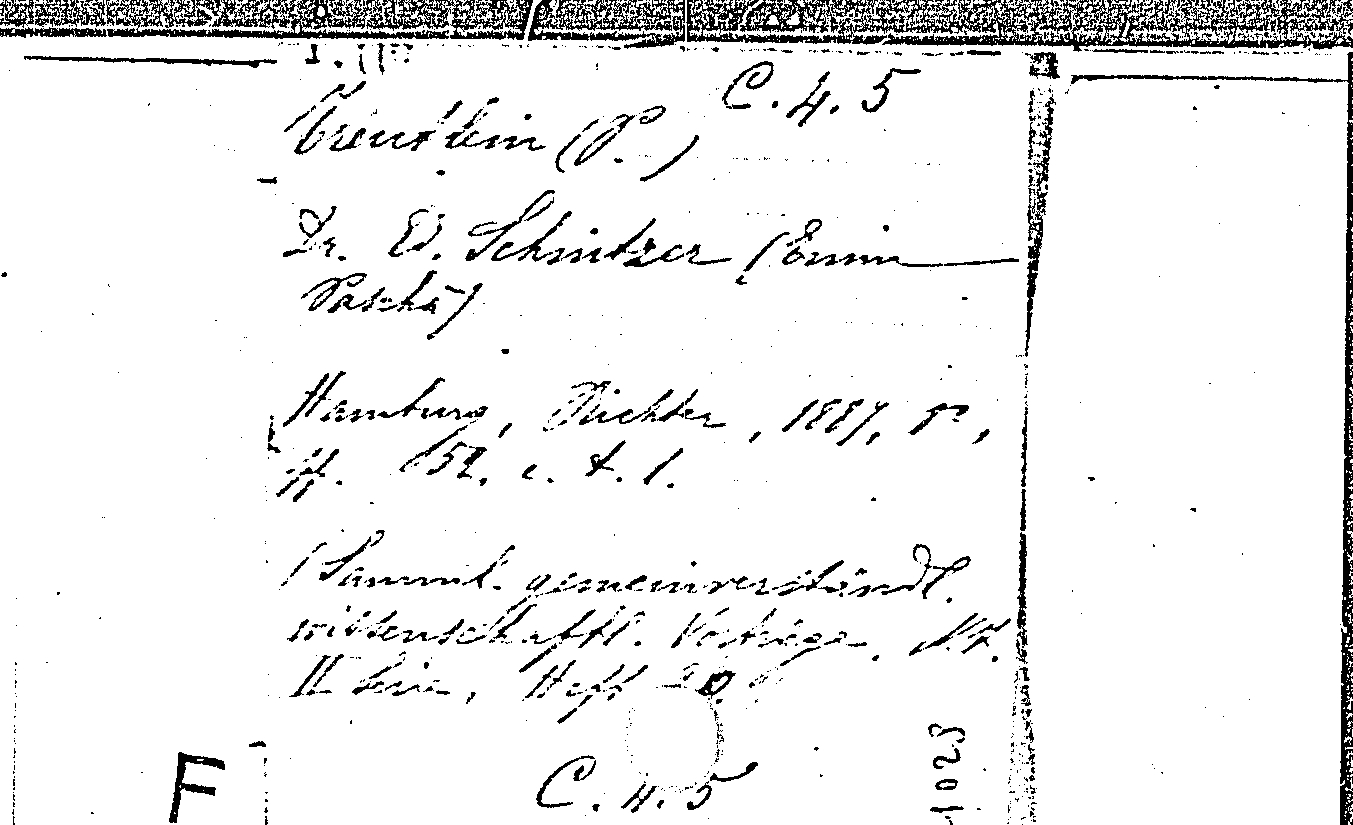 C. 4. 5
Treutlein (P.)
Dr. Ed. Schnitzer (Emin
Pascha)
Hamburg, Richter, 1887, 8°,
ff. 52. c. t. 1.
(Samml. gemeinverständl.
wissenschaftl. Vorträge. N.F.
II Serie, Heft 20.
C. 4. 5
F